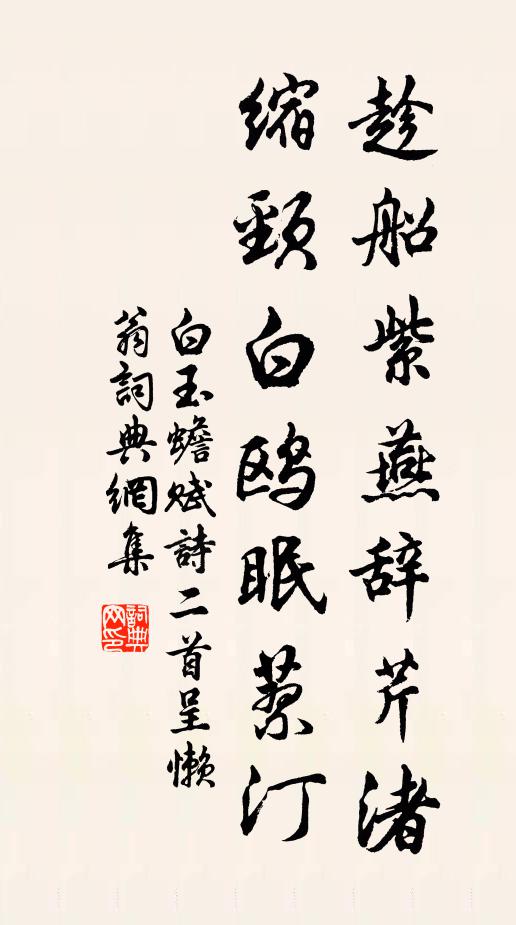 趁船紫燕辞芹渚
缩頸白鸥眠蓼汀
白玉蟾赋詩二首呈懒
翁詞典網集
詞典
网印